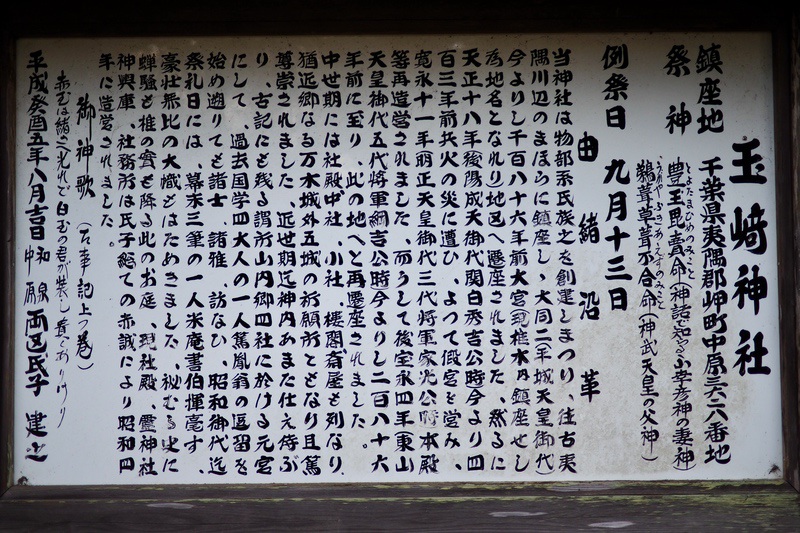 玉﨑神社
鎮座地 千葉県夷隅郡岬町中原三六二六番地
祭神 豊玉毘賣命(神話で知る山幸彦神の妻神)
とよたまひめのみこと
鵜葺草葺不合命(神武天皇の父神)
うがやふきあへずのみこと
例祭日 九月十三日
由緒沿革
当神社は物部系氏族之を創建しまつり、往古夷
隅川辺のまほらに鎮座し、大同二(平城天皇御代)
今よりし千百八十六年前大宮現椎木内鎮座せし
為地名となれり)地区へ遷座されました、然るに
天正十八年後陽成天皇御代関白秀吉公時今より四
百三年前兵火の災に遭ひ、よつて假宮を営み、
寛永十一年明正天皇御代三代将軍家光公時本殿
等再造営されました、而うして後宝永四年東山
天皇御代五代将軍綱吉公時今よりし二百八十六
年前に至り、此の地へと再遷座されました。
中世期には社殿中社、小社、楼閣斎屋も列なり、
猶近郷なる万木城外五城の祈願所ともなり且篤
尊崇されました、近世期迄神内あまた仕え侍ぶ
り、古記にも残る謂所山内郷四社に於ける元宮
にして 過去国学四大人の一人篤胤翁の逗留を
始め遡りても諸士、諸雅、訪なひ、昭和御代迄
祭礼日には、幕末三筆の一人米庵書伯揮毫す、
豪壮無比の大幟もはためきました、秘むる史に
蝉騒も椎の雫も降る此のお庭、現社殿、霊神社
神輿庫、社務所は氏子総ての赤誠により昭和四
年に造営されました。
御神歌 (古事記上つ巻)
赤玉は緒さへ光れど白玉の君が装し貴くありけり
平成癸酉五年八月吉日 和泉 中原 両区氏子 建之